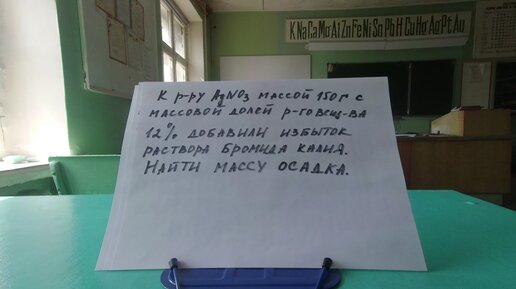 K Na Ca Mg Al Zn Fe Ni Sn Pb H Cu Hg Ag Pt Au
К р-ру AgNO3 массой 150г с
массовой долей р-говещ-ва
12% добавили избыток
раствора бромида калия.
Найти массу осадка.